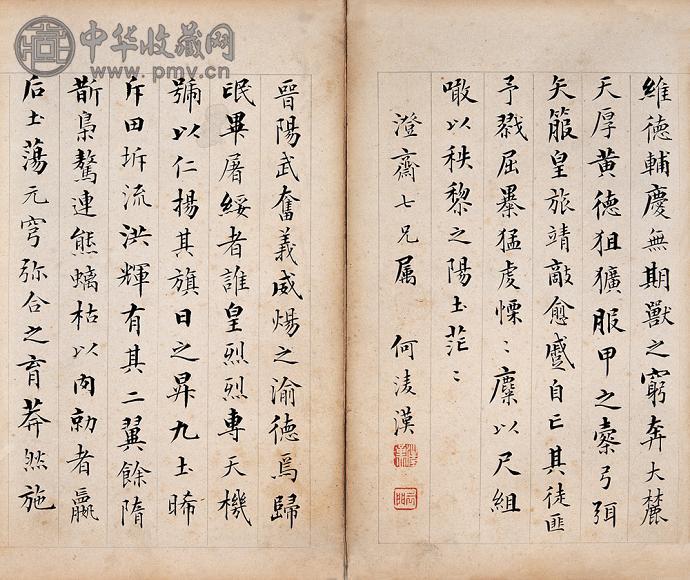 晉陽武奮義威煬之渝德焉歸
氓畢屠綏者誰皇烈烈專天機
號以仁揚其旗日之昇九土晞
斥田坼流洪輝有其二翼餘隋
斮梟驁連熊螭枯以肉勍者羸
后土蕩元穹弥合之育莽然施
維德輔慶無期獸之窮奔大麓
天厚黃德狙獷服甲之櫜弓弭
矢箙皇旅靖敵愈蹙自亡其徒匪
予戮屈猛虔慄〻麋以尺組
噉以秩黎之陽土茫〻
澄齋七兄属 何淩漢
中华收藏网
www.pmcv.cn